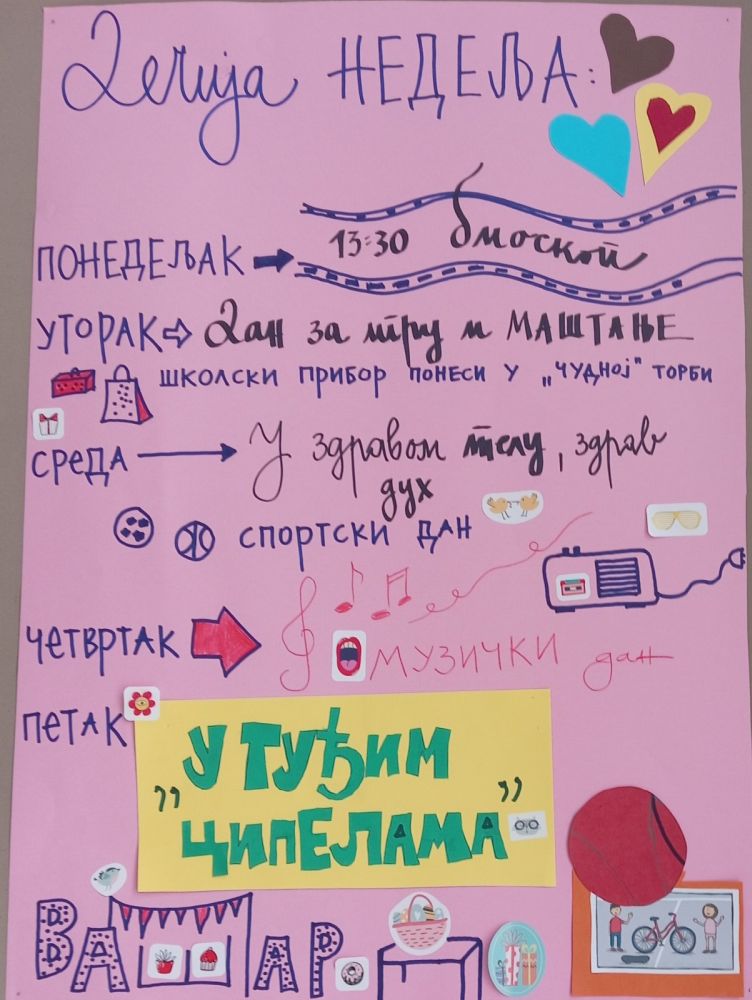 Дечија НЕДЕЉА:
ПОНЕДЕЉАК 13:30 биоскоп
УТОРАК Дан за игру и МАШТАЊЕ
ШКОЛСКИ ПРИБОР ПОНЕСИ У „ЧУДНОЈ" ТОРБИ
СРЕДА У здравом телу, здрав
дух
СПОРТСКИ ДАН
ЧЕТВРТАК МУЗИЧКИ дан
ПЕТАК
„У ТУЂИМ
ЦИПЕЛАМА"
ВАШАР